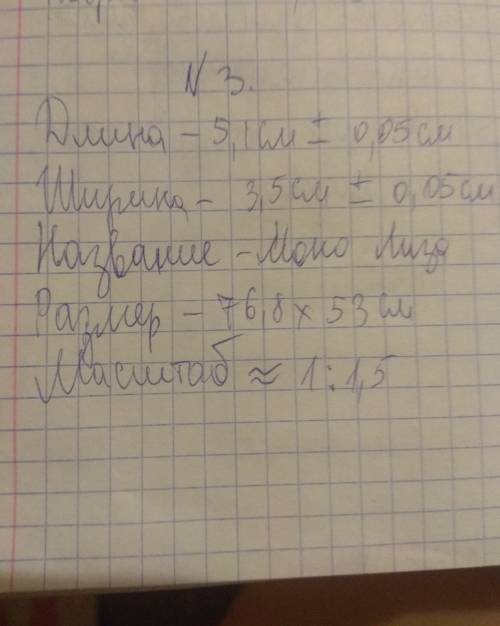 N 3.
Длина – 5,1 см ± 0,05 см
Ширина – 3,5 см ± 0,05 см
Название – Мона Лиза
Размер – 76,8 × 53 см
Масштаб ≈ 1 : 1,5